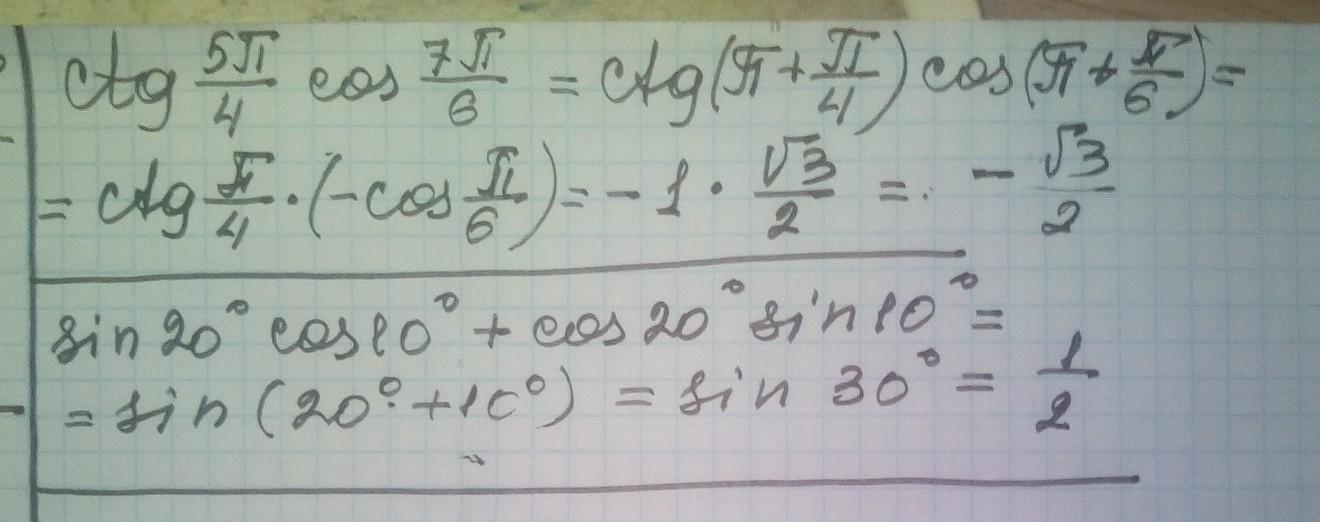 ctg 5π/4 cos 7π/6 = ctg(π + π/4) cos(π + π/6) =
= ctg π/4 · (-cos π/6) = - 1 · √3/2 = - √3/2
sin 20° cos 10° + cos 20° sin 10° =
= sin (20° + 10°) = sin 30° = 1/2